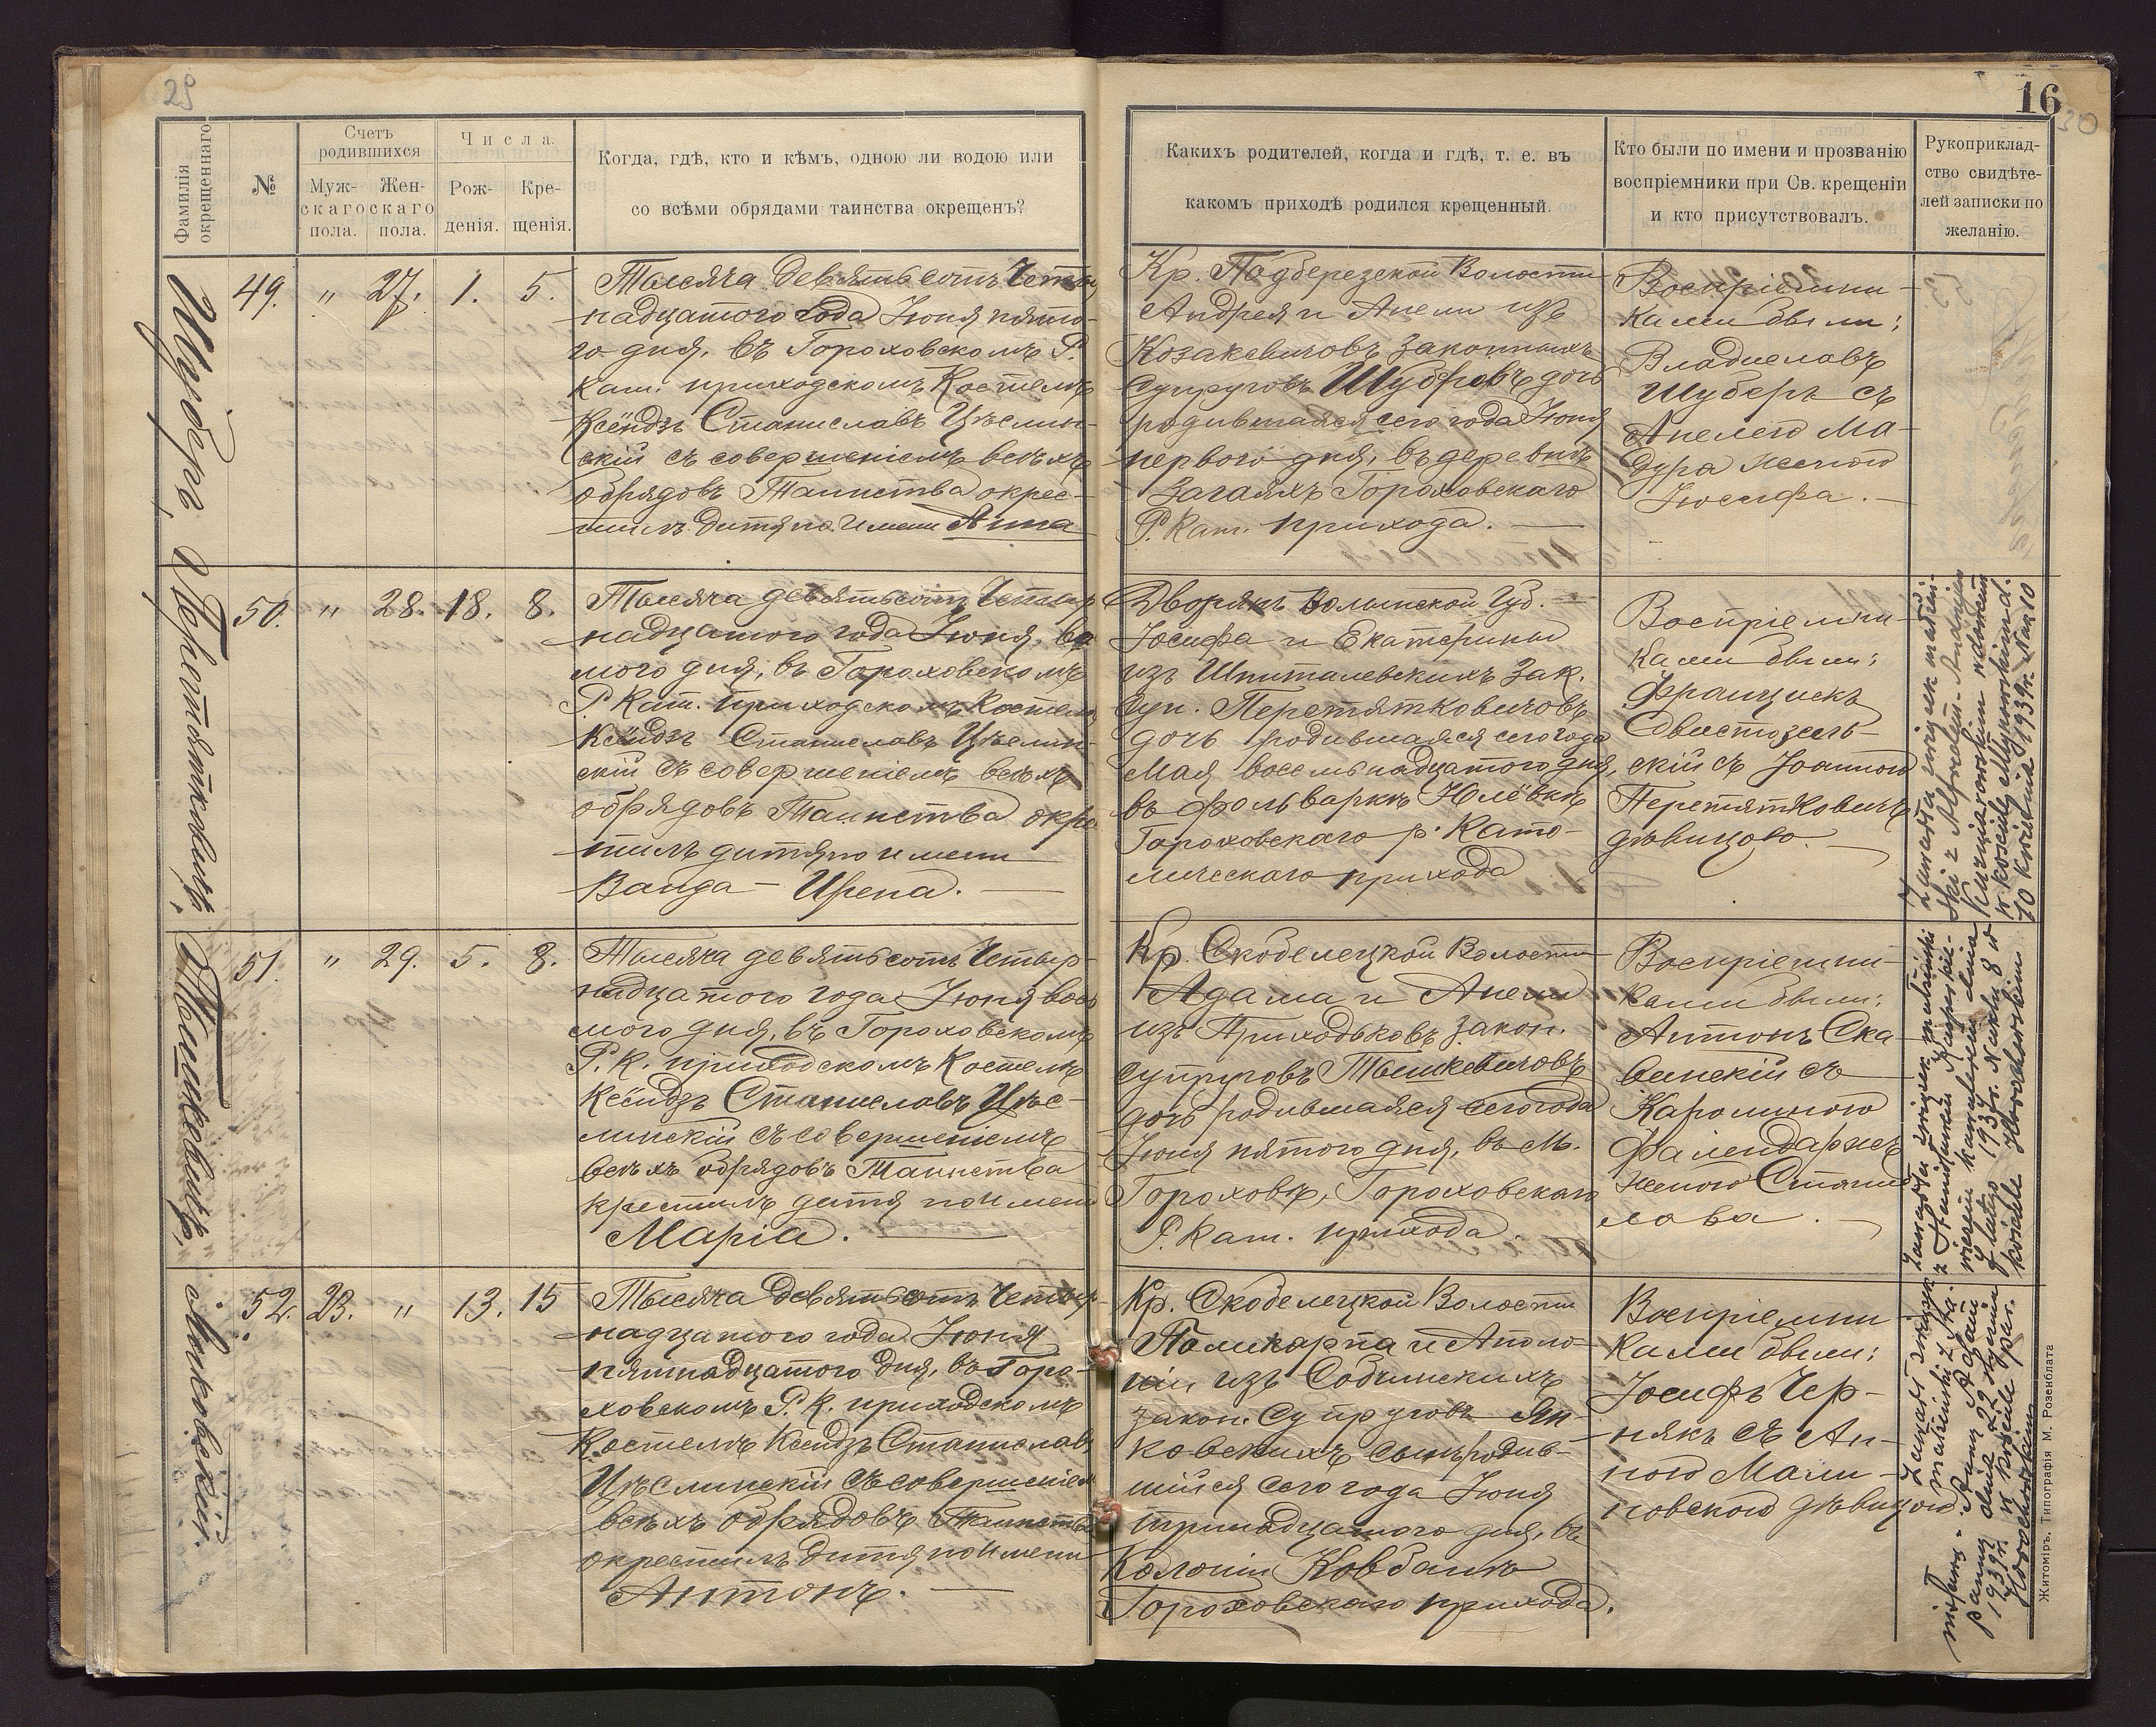 29
16
30
Фамилія окрещеннаго
№
Счетъ родившихся
Муж-
скаго
пола.
Жен-
скаго
пола.
Числа.
Рож-
денія.
Кре-
щенія.
Когда, гдѣ, кто и кѣмъ, одною ли водою или
со всѣми обрядами таинства окрещенъ?
Какихъ родителей, когда и гдѣ, т. е. въ
какомъ приходѣ родился крещенный.
Кто были по имени и прозванію
воспріемники при Св. крещеніи
и кто присутствовалъ.
Рукоприклад-
ство свидѣте-
лей записки по
желанію.
Шуберъ
49. " 27. 1. 5.
Тысяча девятьсотъ Четыр
надцатого года Іюня пято-
го дня, въ Гороховскомъ Р.
Кат. приходскомъ Костелѣ
Ксёндзъ Станиславъ Цѣслин-
скій съ совершеніемъ всѣхъ
обрядовъ Таинства окрес-
тилъ дитя по имени Анна
Кр. Подберезской Волости
Андрея и Анели изъ
Козакевичовъ законныхъ
супруговъ Шубровъ дочь
родившаяся сего года Іюня
перваго дня, въ деревнѣ
Загаяхъ Гороховскаго
Р. Кат. прихода.
Воспріемни-
ками были:
Владиславъ
Шуберъ съ
Анелею Ма-
дура женою
Іосифа.
Перетятковичъ
50. " 28. 18. 8.
Тысяча девятьсотъ Четыр
надцатого года Іюня, вос
мого дня, въ Гороховскомъ
Р. Кат. приходскомъ Костелѣ
Ксёндзъ Станиславъ Цѣслин-
скій съ совершеніемъ всѣхъ
обрядовъ Таинства окре
тилъ дитя по имени
Ванда - Ирена.
Дворянъ Волынской Губ.
Іосифа и Екатерины
изъ Шпиталевскихъ Зак.
Суп. Перетятковичовъ
дочь родившаяся сего года
Мая восемьнадцатого дня,
въ фольваркѣ Юлёвкѣ
Гороховскаго р. Като-
лическаго прихода
Воспріемни-
ками были:
Францискъ
скій съ Іоанною
Перетятковичъ
дѣвицою.
Zawarła związek małżeń-
ski z Alfredem-Andrzejem
w kościele
10 kwietnia 1939r. Nr 10
Тышкевичъ
51. " 29. 5. 8.
Тысяча девятьсотъ Четыр-
надцатого года Іюня вось
мого дня, въ Гороховскомъ
Р. К. приходскомъ Костелѣ
Ксёндзъ Станиславъ Цѣс-
линскій съ совершеніемъ
всѣхъ обрядовъ Таинства
крестилъ дитя по имени
Марія.
Кр. Скобелецкой Волости
Адама и Анели
изъ Приходьковъ Закон.
супруговъ Тышкевичовъ
дочь родившаяся сего года
Іюня пятого дня, въ М.
Гороховѣ, Гороховскаго
Р. Кат. прихода.
Воспріемни-
ками были:
Антонъ Ска-
винскій съ
Каролиною
женою Станис
лава.
Zawarła związek małżeński
z Stanisławem
dnia
lutego
kościele
Янковскій
52. 23. " 13. 15
Тысяча девятьсотъ Четыр-
надцатого года Іюня
пятнадцатого дня, въ Горо-
ховскомъ Р. К. приходскомъ
Костелѣ Ксёндзъ Станиславъ
Цѣслинскій съ совершеніем
всѣхъ обрядовъ Таинства
окрестилъ дитя по имени
Антонъ.
Кр. Скобелецкой Волости
Поликарпа и Аполо-
ніи изъ Собчинскихъ
закон. Супруговъ Ян-
ковскихъ сынъ родив-
шійся сего года Іюня
тринадцатого дня, въ
Колоніи Ковбань
Гороховскаго прихода.
Воспріемни
ками были:
Іосифъ Чер-
някъ съ Ан-
ною Мали-
новскою дѣвицою
Zawarł związek
małżeński z
Anną
panną dnia 29 stycznia
1939r. w kościele par.
Житоміръ. Типографія М. Розенблата